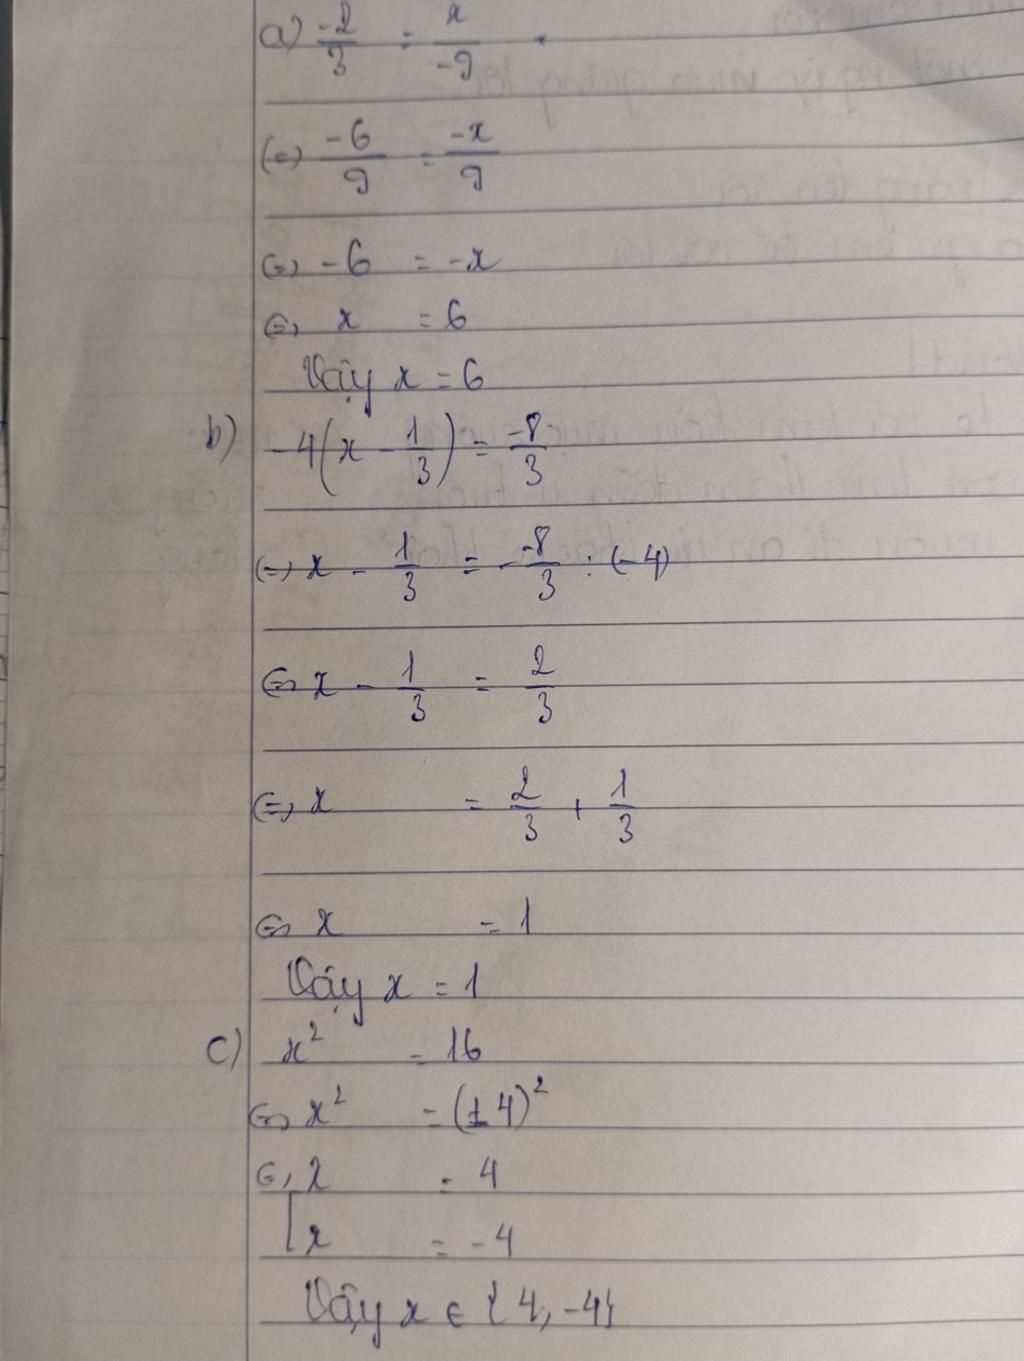 a) -2/3 = x/-9
(=) -6/9 = -x/9
(=) -6 = -x
(=) x = 6
Vậy x = 6
b) -4(x - 1/3) = -8/3
(=) x - 1/3 = -8/3 : (-4)
(=) x - 1/3 = 2/3
(=) x = 2/3 + 1/3
(=) x = 1
Vậy x = 1
c) x² = 16
(=) x² = (±4)²
(=) x = 4
[x = -4
Vậy x ∈ {4, -4}